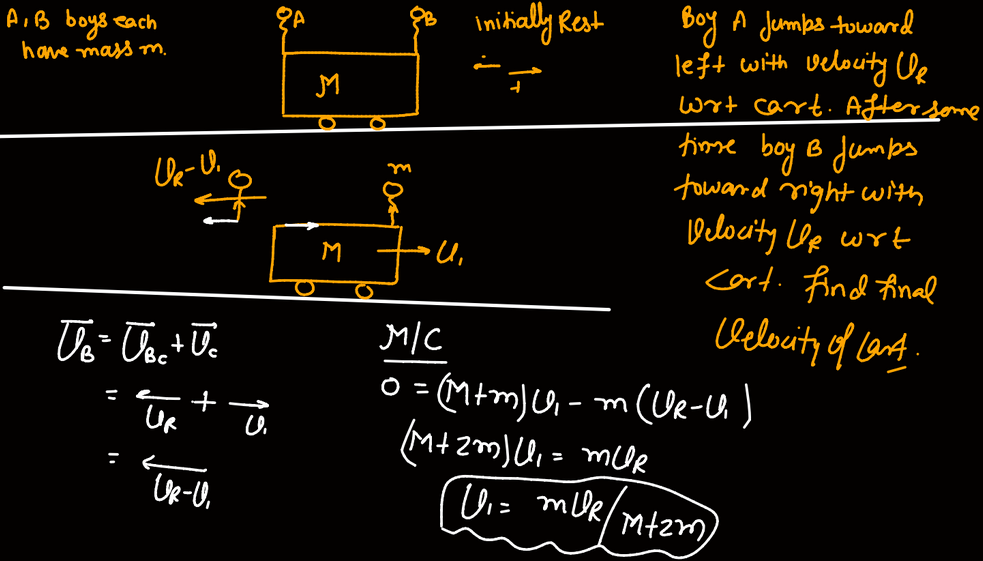 A, B boys each
have mass m.
A
B
M
initially Rest
+
Boy A Jumps toward
left with velocity U_R
wrt cart. After some
time boy B Jumps
toward right with
Velocity U_R wrt
Cart. find final
Velocity of Cart.
U_R-U_1
m
M
U_1
U_B = U_Bc + U_c
= U_R + U_1
= U_R-U_1
M/C
0 = (M+m)U_1 - m(U_R-U_1)
(M+2m)U_1 = mU_R
U_1 = mU_R/M+2m